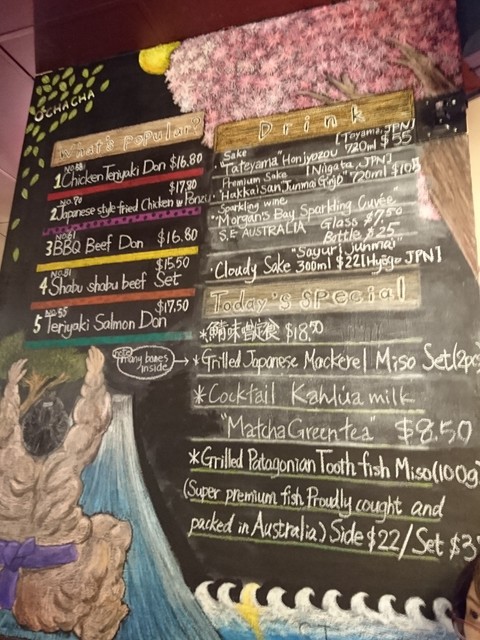 OCHACHA
What's Popular?
No.88
1 Chicken Teriyaki Don $16.80
No.90 $17.80
2 Japanese style fried Chicken w Ponzu
No.61
3 BBQ Beef Don $16.80
No.81 $15.50
4 Shabu shabu beef Set
No.55 $17.50
5 Teriyaki Salmon Don
Drink
Sake [Toyama, JPN]
"Tateyama" Honjyozou 720ml $55
Premium Sake [Niigata, JPN]
"Hakkaisan Junmai Ginjo" 720ml $105
Sparkling wine
"Morgan's Bay Sparkling Cuvée"
S.E AUSTRALIA Glass $7.50
Bottle $25
"Sayuri Junmai"
Cloudy Sake 300ml $22 [Hyogo JPN]
Today's SPecial
* $18.50
many bones inside
* Grilled Japanese Mackerel Miso Set (2pc
* Cocktail Kahlúa milk
"Matcha Green tea" $8.50
* Grilled Patagonian Tooth fish Miso (100g
(Super premium fish. Proudly cought and
packed in Australia) Side $22/Set $3